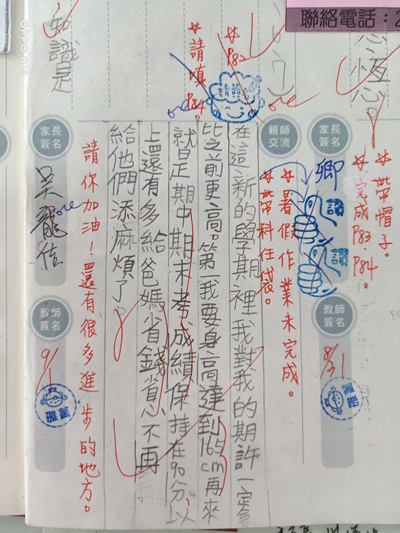 聯絡電話:2
恆心。
*帶帽子。
*完成P83、P84。
家長簽名
讚
讚
教師簽名
8/31
*暑假作業未完成。
*帶科任袋。
親師交流
*P82
*請填P84。
在這新的學期裡我對我的期許一定會
比之前更高第一我要身高達到165cm再來
就是期中期末考成績保持在90分以
上還有多給爸媽省錢省心不再
給他們添麻煩了。
知識是
請你加油!還有很多進步的地方。
家長簽名
教師簽名
9/1